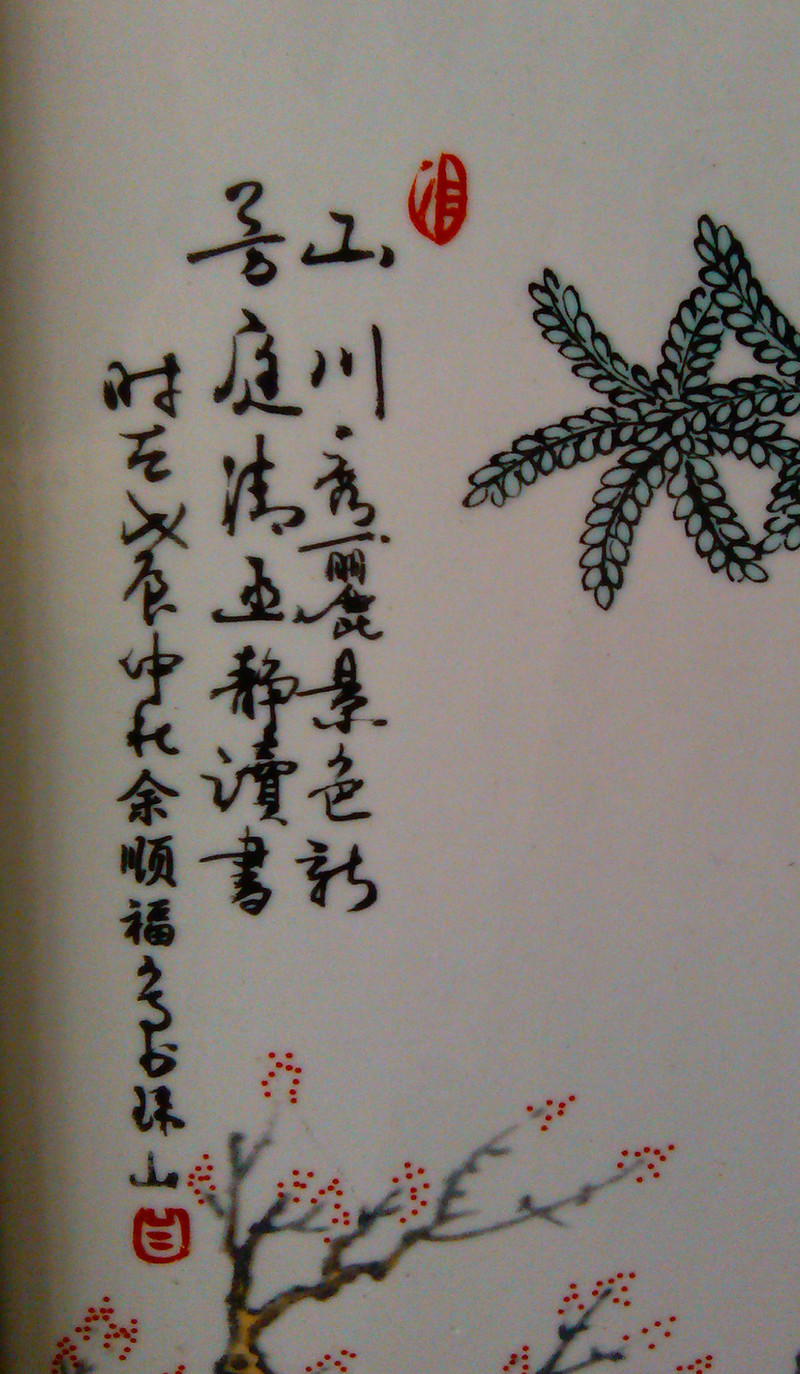 山川秀麗景色新
芳庭清静讀書
时在戊辰仲秋余顺福写于珠山